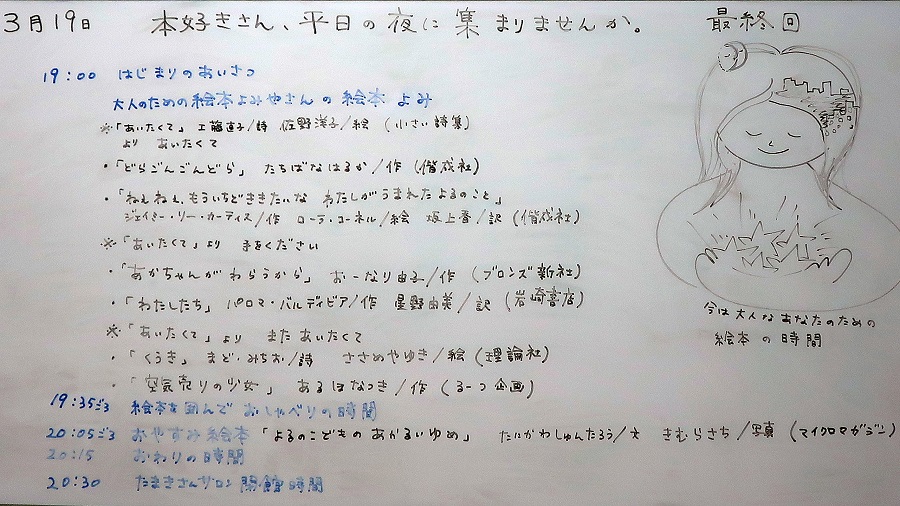 3月19日 本好きさん、平日の夜に集まりませんか。 最終回
19:00 はじまりのあいさつ
大人のための絵本よみやさんの絵本よみ
※「あいたくて」工藤直子/詩 佐野洋子/絵 (小さい詩集)
より あいたくて
・「どらごんごんどら」 たちばなはるか/作 (偕成社)
・「ねぇねぇ、もういちどききたいな わたしがうまれたよるのこと」
ジェイミー・リー・カーティス/作 ローラ・コーネル/絵 坂上香/訳 (偕成社)
※「あいたくて」より 手をください
・「あかちゃんがわらうから」 おーなり由子/作 (ブロンズ新社)
・「わたしたち」 パロマ・バルディビア/作 星野由美/訳 (岩崎書店)
※「あいたくて」より またあいたくて
・「くうき」 まど・みちお/詩 ささめやゆき/絵 (理論社)
・「空気売りの少女」 あるほなつき/作 (るーつ企画)
19:35ごろ 絵本を囲んでおしゃべりの時間
20:05ごろ おやすみ絵本「よるのこどものあかるいゆめ」 たにかわしゅんたろう/文 きむらさち/写真 (マイクロマガジン)
20:15 おわりの時間
20:30 たまきさんサロン閉館時間
今は大人なあなたのための
絵本の時間